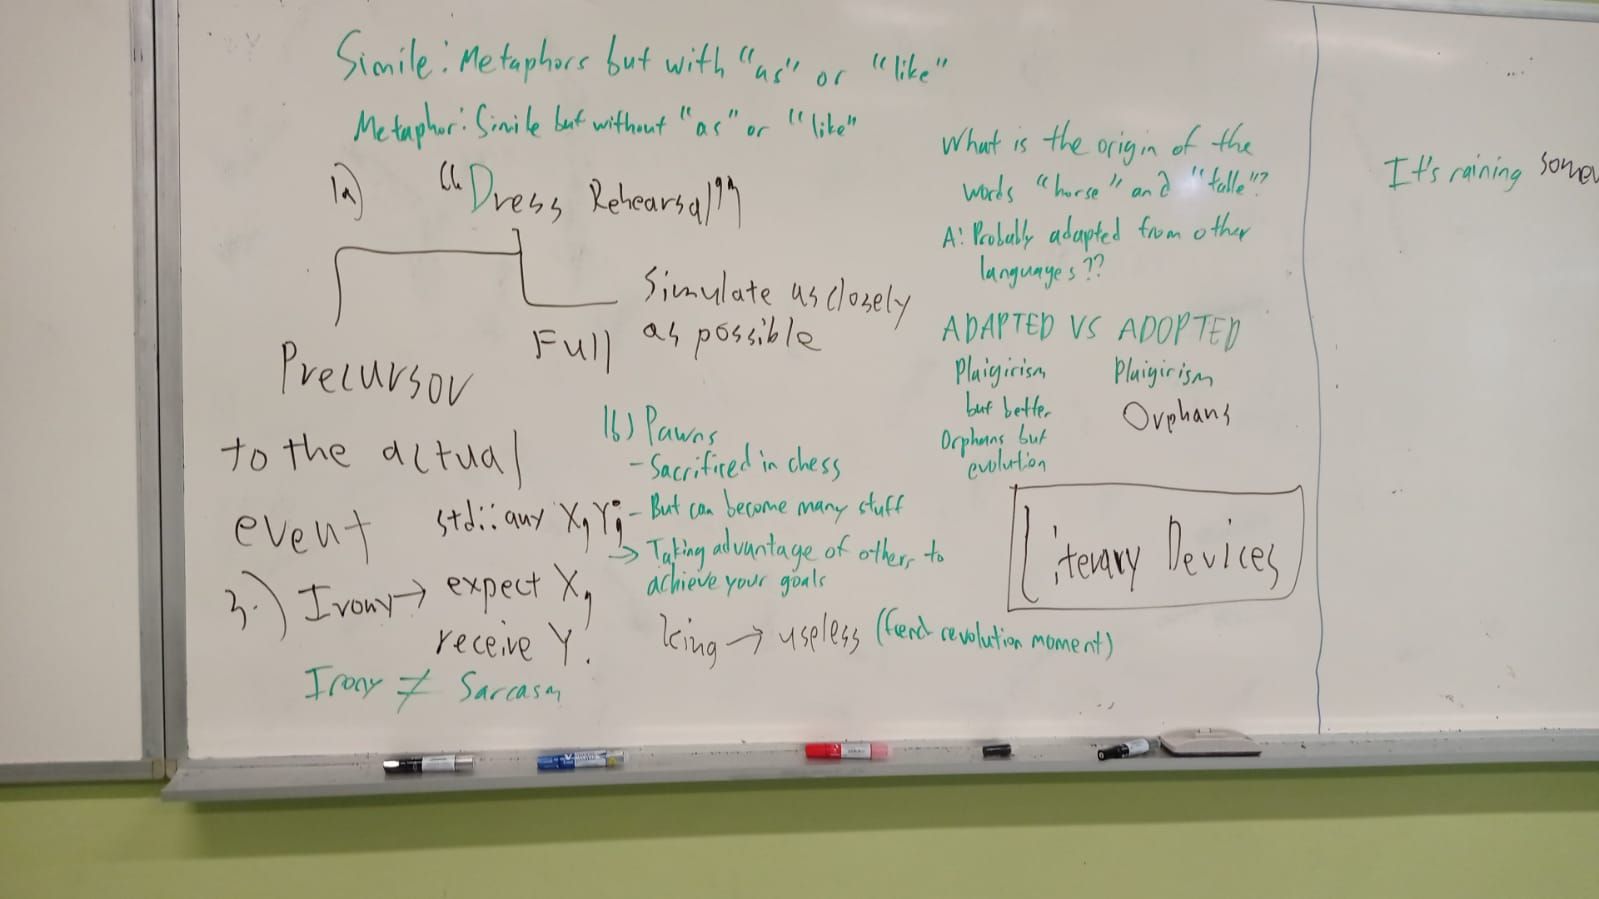 Simile: Metaphors but with "as" or "like"
Metaphor: Simile but without "as" or "like"
1a) "Dress Rehearsal"
Precursor
to the actual
event
Full
Simulate as closely
as possible
1b) Pawns
- Sacrificed in chess
- But can become many stuff
→ Taking advantage of others to
achieve your goals
king → useless (french revolution moment)
std::any X, Y;
3.) Irony → expect X,
receive Y.
Irony ≠ Sarcasm
What is the origin of the
words "horse" and "talle"?
A: Probably adapted from other
languages??
ADAPTED VS ADOPTED
Plaigirism
but better
Orphans but
evolution
Plaigirism
Orphans
Literary Devices
It's raining